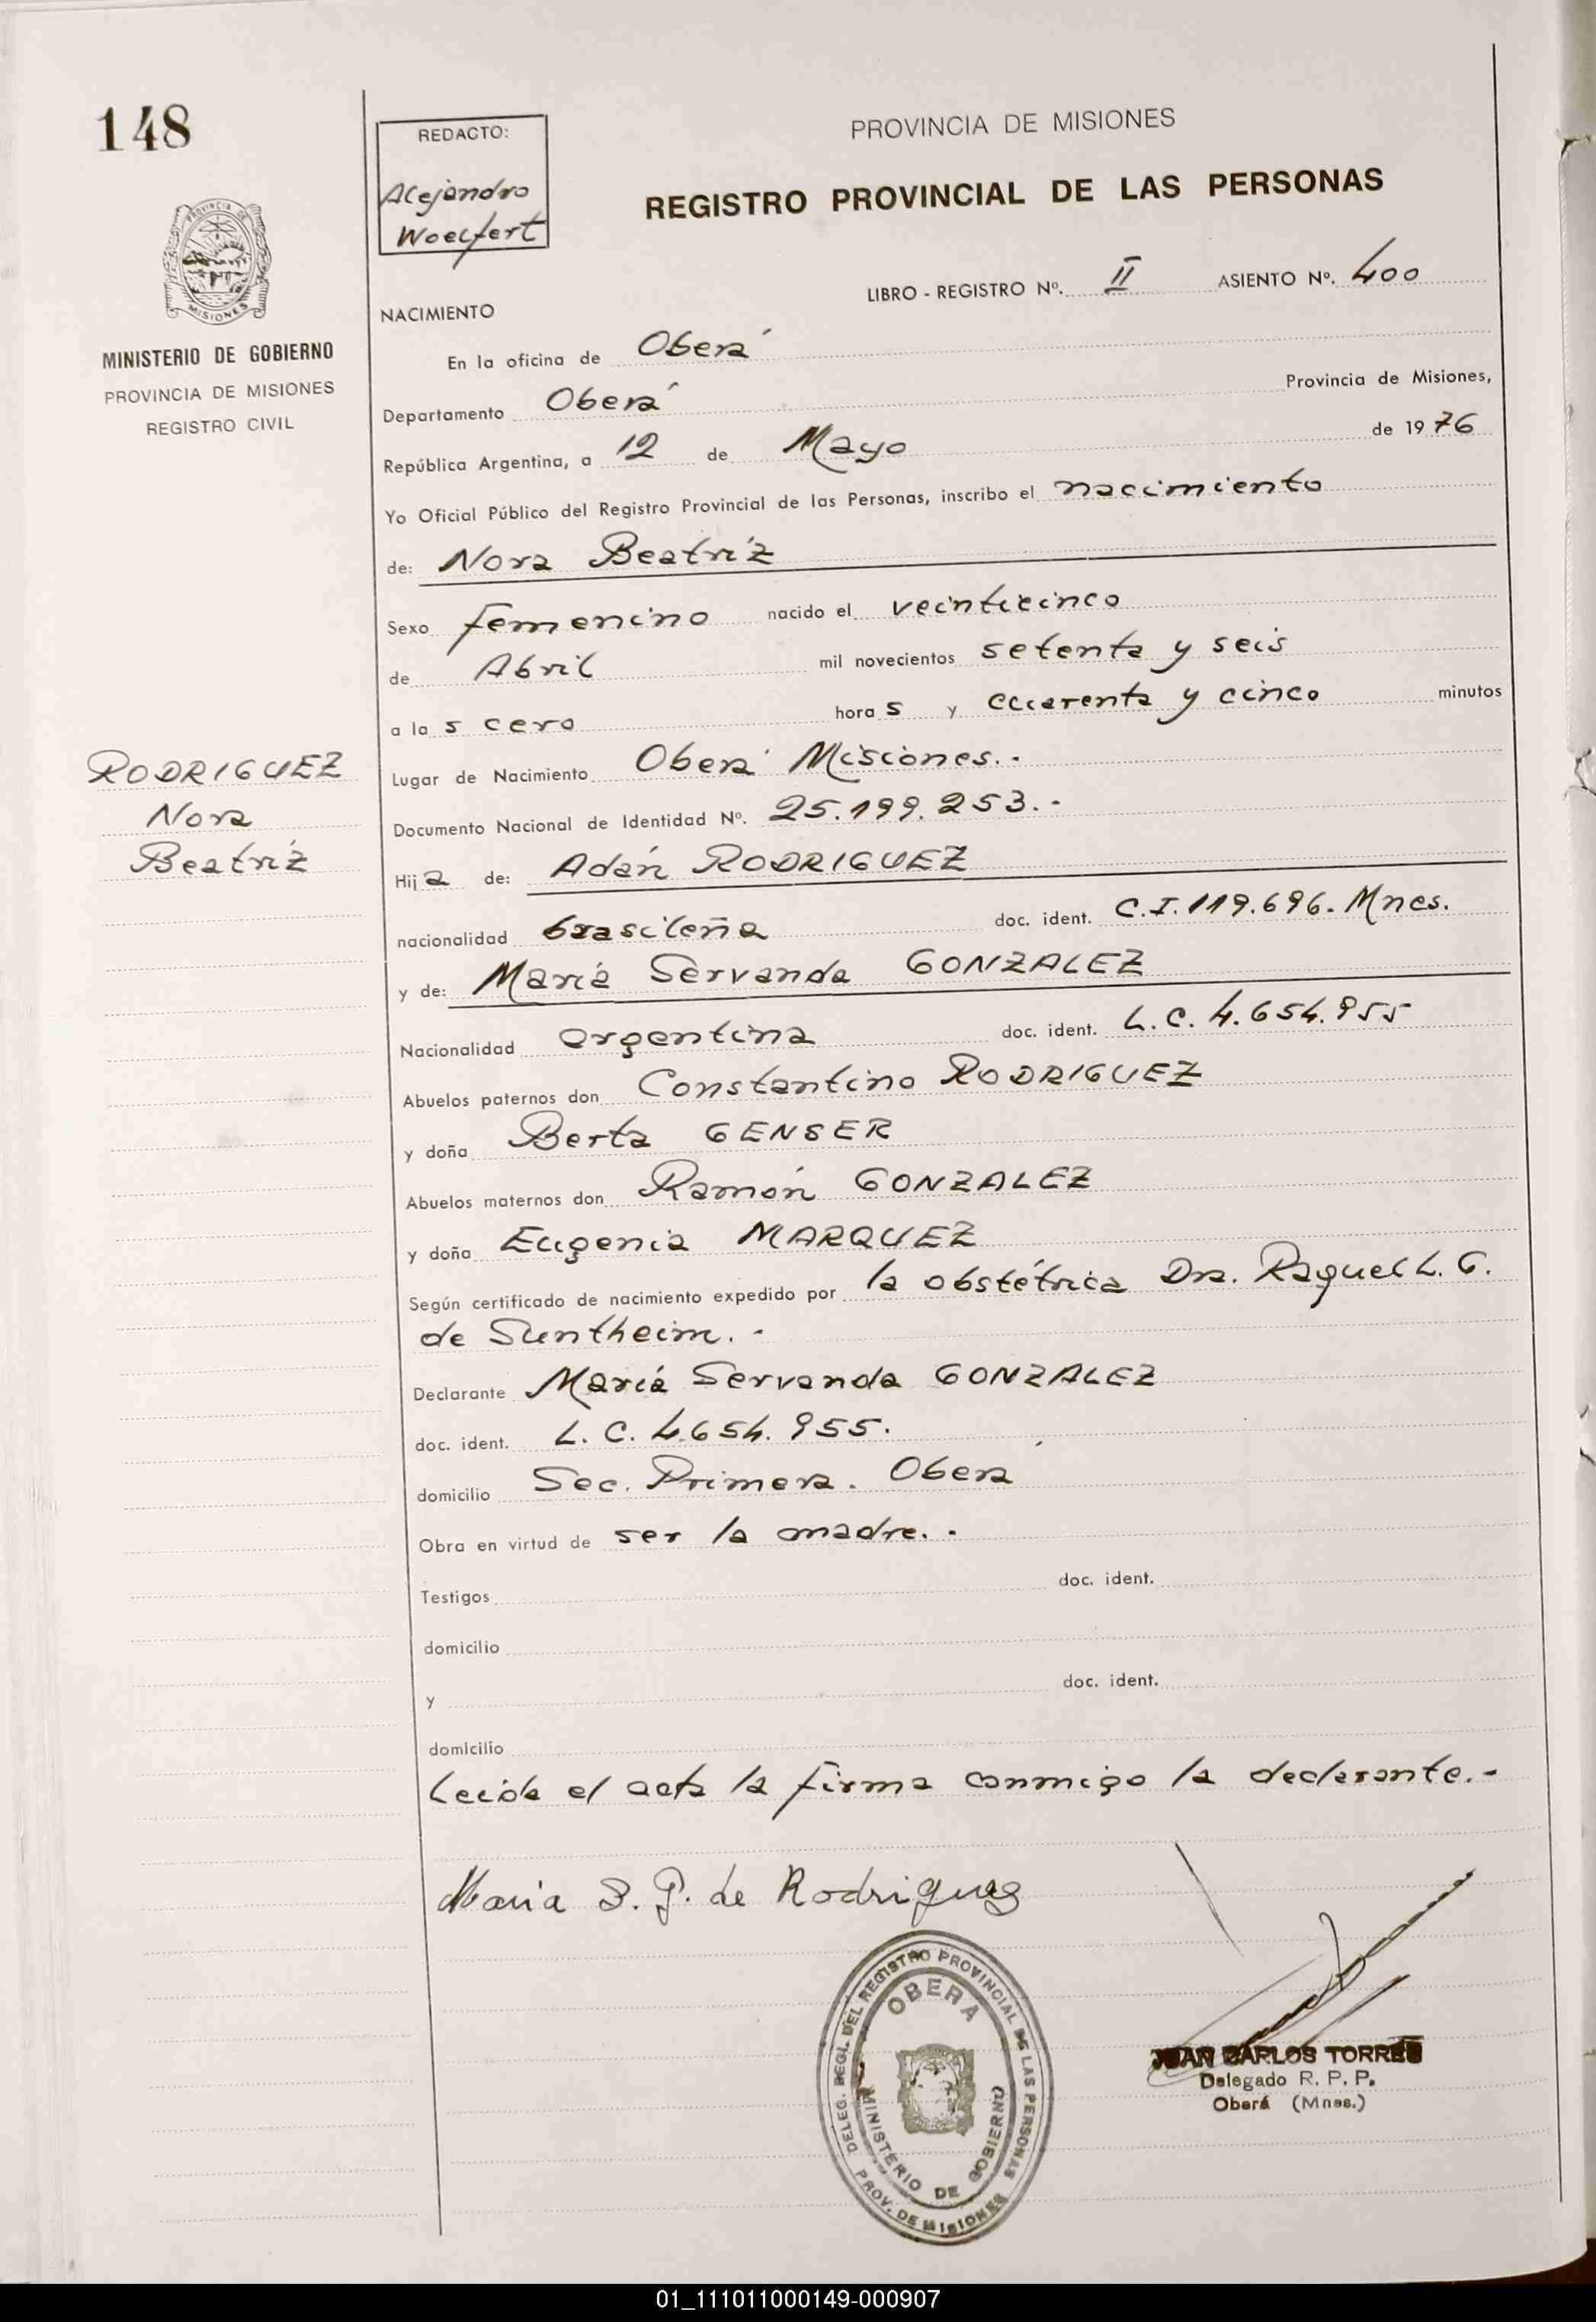 148
REDACTO:
Alejandro
Woelfert
PROVINCIA DE MISIONES
REGISTRO PROVINCIAL DE LAS PERSONAS
PROVINCIA DE
MISIONES
MINISTERIO DE GOBIERNO
PROVINCIA DE MISIONES
REGISTRO CIVIL
LIBRO - REGISTRO Nº. II ASIENTO Nº. 400
NACIMIENTO
En la oficina de Oberá
Departamento Oberá Provincia de Misiones,
República Argentina, a 12 de Mayo de 1976
Yo Oficial Público del Registro Provincial de las Personas, inscribo el nacimiento
de: Nora Beatríz
Sexo femenino nacido el veinticinco
de Abril mil novecientos setenta y seis
a la s cero hora s y cuarenta y cinco minutos
RODRIGUEZ
Nora
Beatríz
Lugar de Nacimiento Oberá Misiones.-
Documento Nacional de Identidad Nº. 25.199.253.-
Hija de: Adán RODRIGUEZ
nacionalidad brasileña doc. ident. C.I.119.696. Mnes.
y de: María Servanda GONZALEZ
Nacionalidad argentina doc. ident. L.C. 4.654.955
Abuelos paternos don Constantino RODRIGUEZ
y doña Berta GENSER
Abuelos maternos don Ramón GONZALEZ
y doña Eugenia MARQUEZ
Según certificado de nacimiento expedido por la obstétrica Dra. Raquel L. G.
de Suntheim.-
Declarante María Servanda GONZALEZ
doc. ident. L.C. 4.654.955.
domicilio Sec. Primera. Oberá
Obra en virtud de ser la madre.-
Testigos doc. ident.
domicilio
y doc. ident.
domicilio
Leída el acta la firma conmigo la declarante.-
Maria S. G. de Rodriguez
DELEG. REGL. DEL REGISTRO PROVINCIAL DE LAS PERSONAS
OBERA
MINISTERIO DE GOBIERNO
PROV. DE MISIONES
JUAN CARLOS TORRES
Delegado R. P. P.
Oberá (Mnes.)
01_111011000149-000907